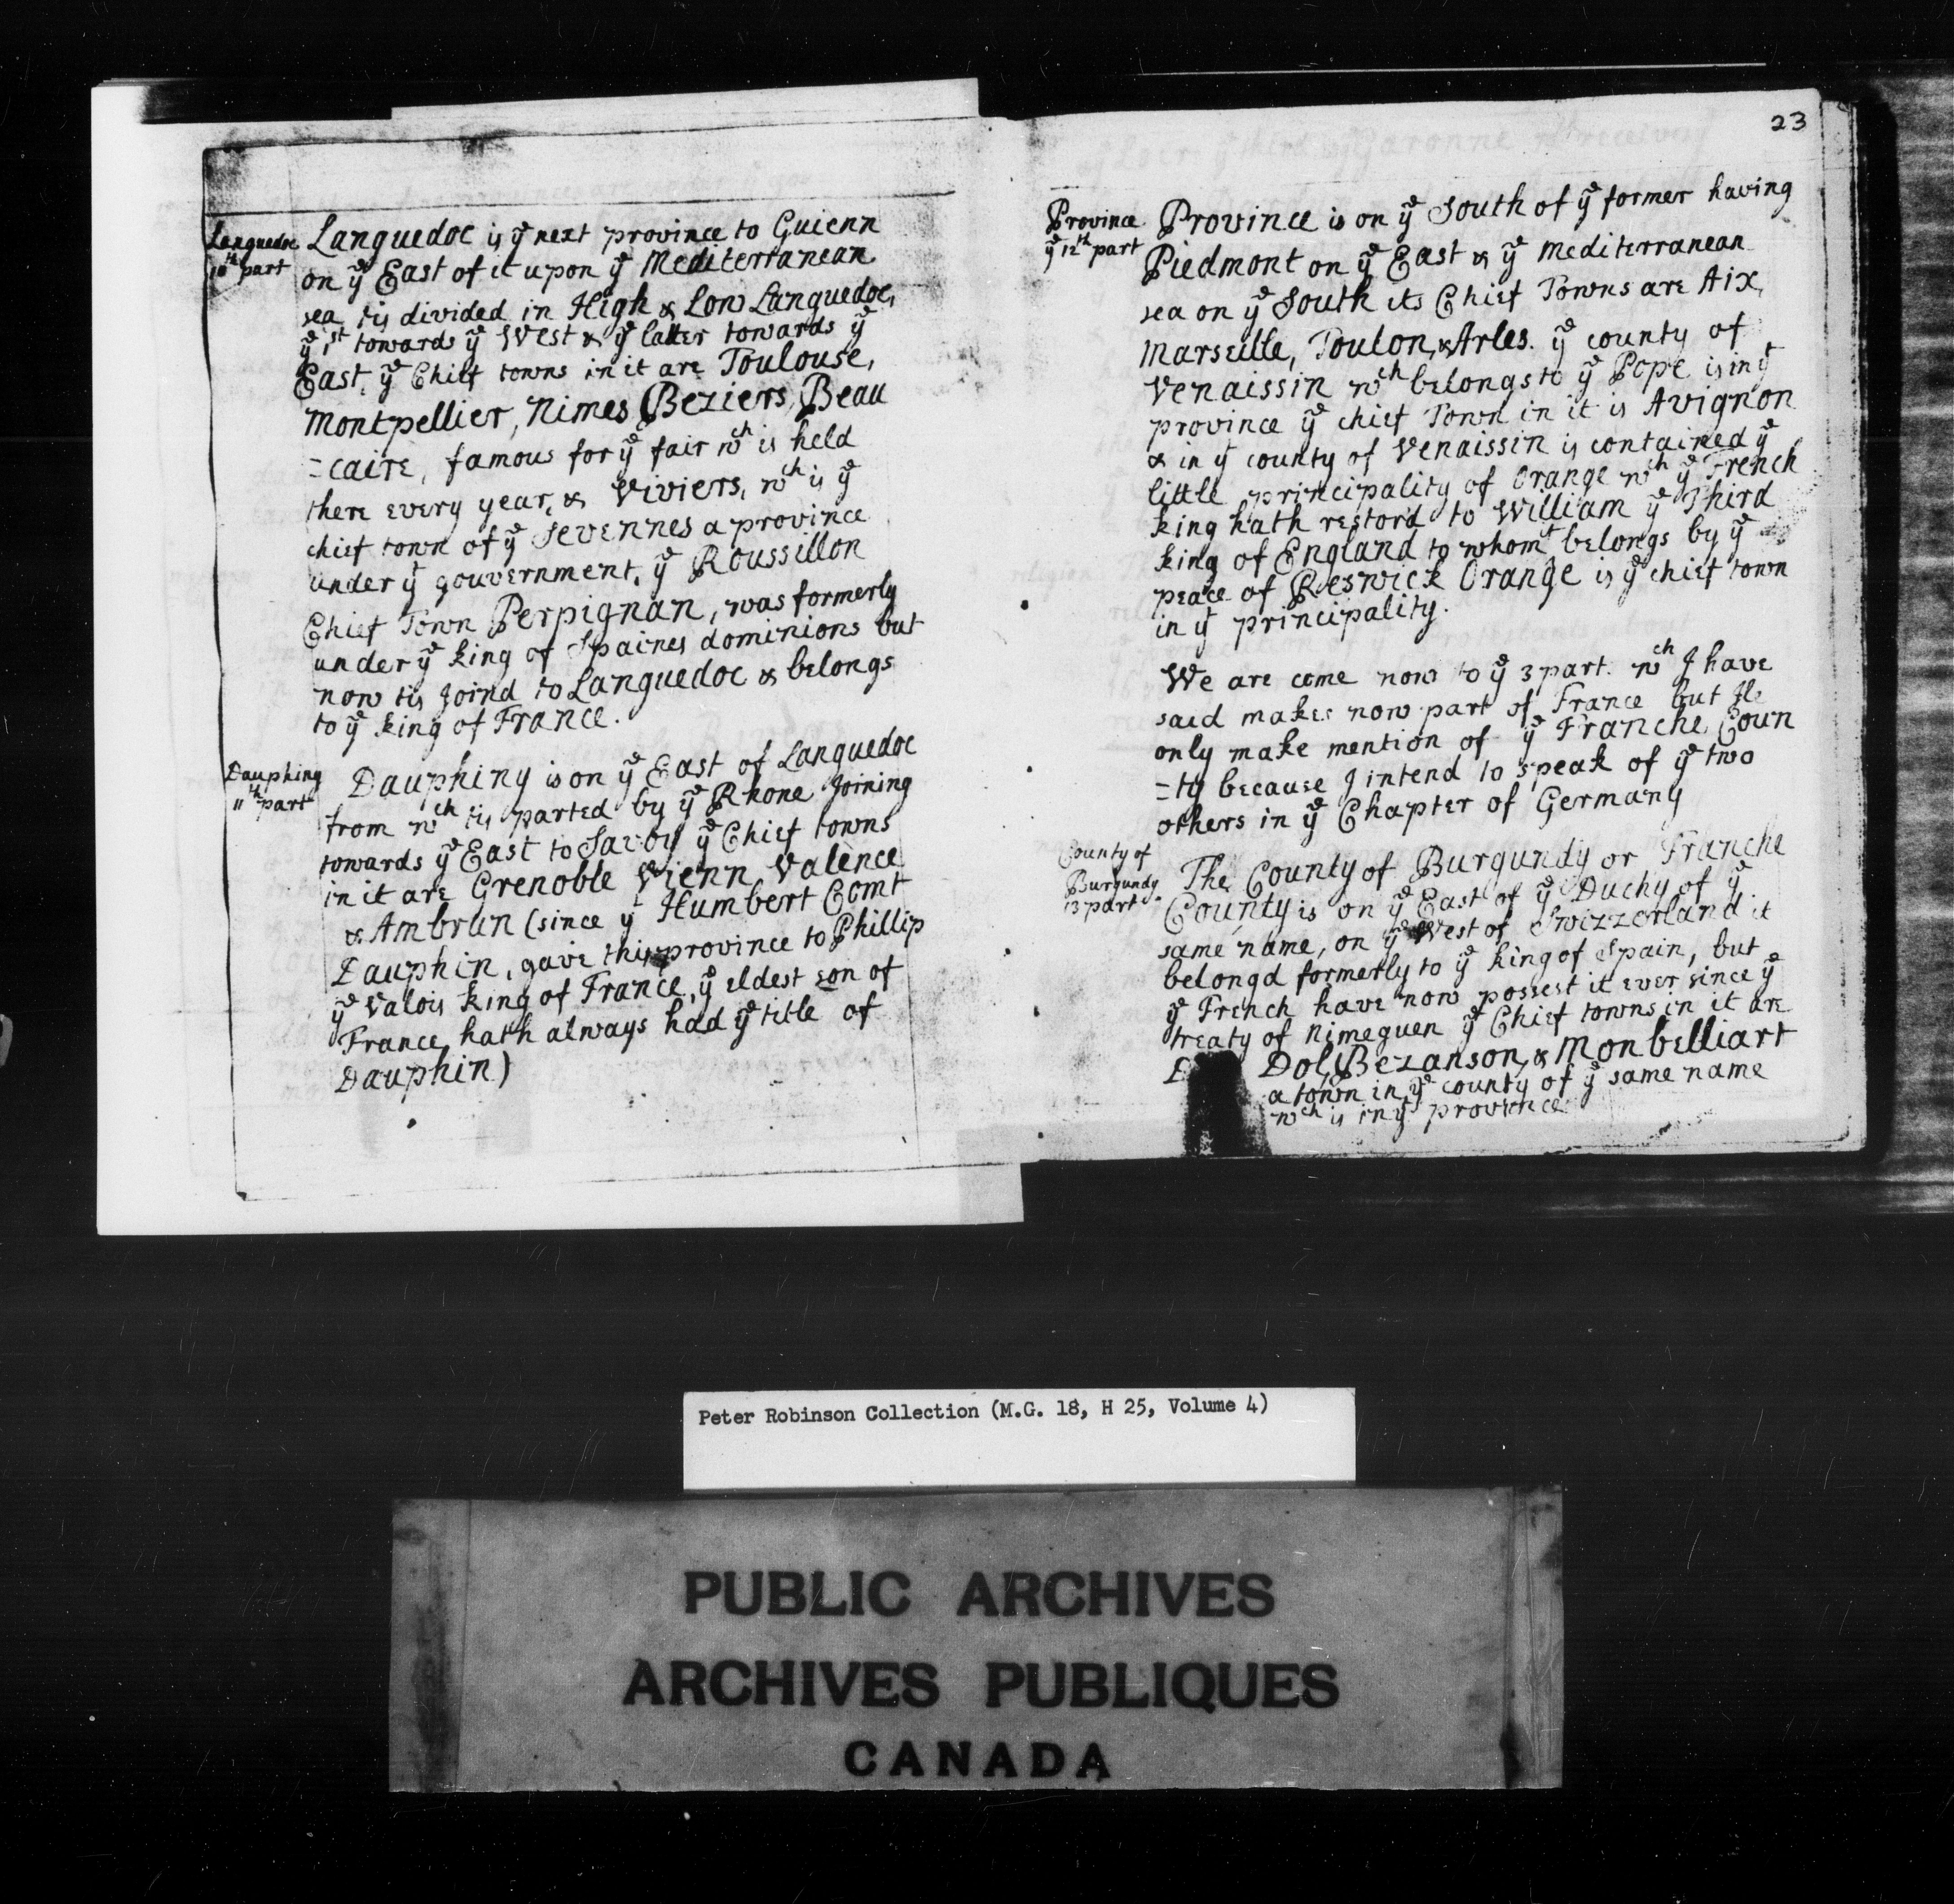 Languedoc
10th part
Languedoc is ye next province to Guienn
on ye East of it upon ye Mediterranean
sea tis divided in High & Low Languedoc,
ye 1st towards ye West & ye latter towards ye
East, ye Chief towns in it are Toulouse,
Montpellier, Nimes, Beziers, Beau
=caire, famous for ye fair wch is held
there every year, & Viviers, wch is ye
chief town of ye Sevennes a province
under yt gouvernment, ye Roussillon
Chief Town Perpignan, was formerly
under ye king of Spaines dominions but
now tis Joind to Languedoc & belongs
to ye king of France.
Dauphiny
11th part
Dauphiny is on ye East of Languedoc
from wch tis parted by ye Rhone Joining
towards ye East to Savoy ye Chief towns
in it are Grenoble Vienn Valence
& Ambrun (since yt Humbert Comt
Dauphin, gave this province to Phillip
ye Valois king of France, ye eldest son of
France, hath always had ye title of
Dauphin)
23
Province
ye 12th part
Province is on ye South of ye former having
Piedmont on ye East & ye Mediterranean
sea on ye South its Chief Towns are Aix,
Marseille, Toulon, & Arles. ye county of
Venaissin wch belongs to ye Pope is in yt
province ye chief Town in it is Avignon
& in yt county of Venaissin is contained ye
little principality of Orange wch ye French
king hath restord to William ye Third
king of England to whom t belongs by ye
peace of Reswick Orange is ye chief town
in yt principality.
We are come now to ye 3 part. wch I have
said makes now part of France but Ile
only make mention of ye Franche Coun
=ty because I intend to speak of ye two
others in ye Chapter of Germany
County of
Burgundy
13 part
The County of Burgundy or Franche
County is on ye East of ye Duchy of ye
same name, on ye West of Swizzerland it
belongd formerly to ye king of Spain, but
ye French have now possest it ever since ye
treaty of Nimeguen ye Chief towns in it are
Dol, Bezanson, & Monbelliart
a town in ye county of ye same name
wch is in yt province
Peter Robinson Collection (M.G. 18, H 25, Volume 4)
PUBLIC ARCHIVES
ARCHIVES PUBLIQUES
CANADA